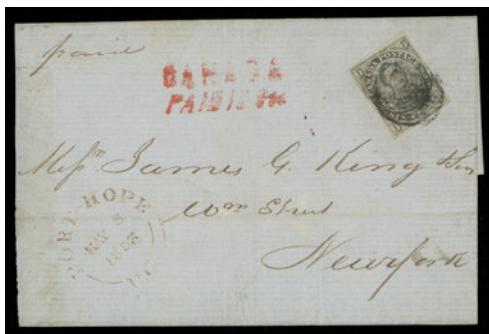 paid
CANADA
PAID 10 Cts
CANADA POSTAGE
Messrs James G. King & Son
Street
New York
PORT-HOPE
MAY 5